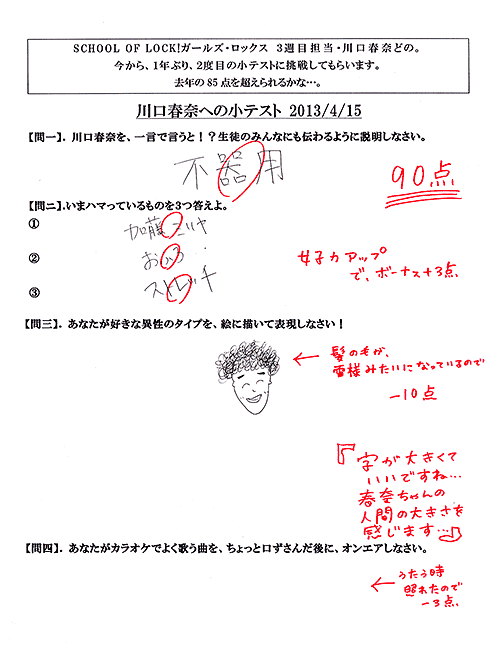 SCHOOL OF LOCK!ガールズ・ロックス 3週目担当・川口春奈どの。
今から、1年ぶり、2度目の小テストに挑戦してもらいます。
去年の85点を超えられるかな…。
川口春奈への小テスト 2013/4/15
【問一】. 川口春奈を、一言で言うと！？生徒のみんなにも伝わるように説明しなさい。
不器用
90点
【問ニ】.いまハマっているものを3つ答えよ。
① 加藤ミリヤ
② おふろ
③ ストレッチ
女子力アップ
で、ボーナス+3点
【問三】. あなたが好きな異性のタイプを、絵に描いて表現しなさい！
← 髪の毛が、
雷様みたいになっているので
-10点
『字が大きくて
いいですね…
春奈ちゃんの
人間の大きさを
感じます…』
【問四】. あなたがカラオケでよく歌う曲を、ちょっと口ずさんだ後に、オンエアしなさい。
← うたう時
照れたので
-3点